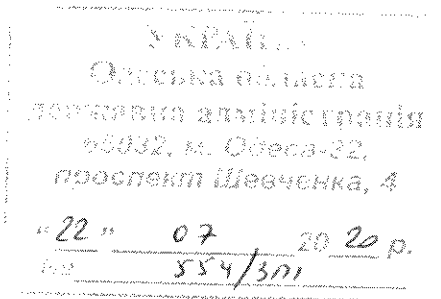 УКРАЇНА
Одеська обласна
державна адміністрація
65032, м. Одеса-32,
проспект Шевченка, 4
"22" 07 2020 р.
№ 554/ЗПІ